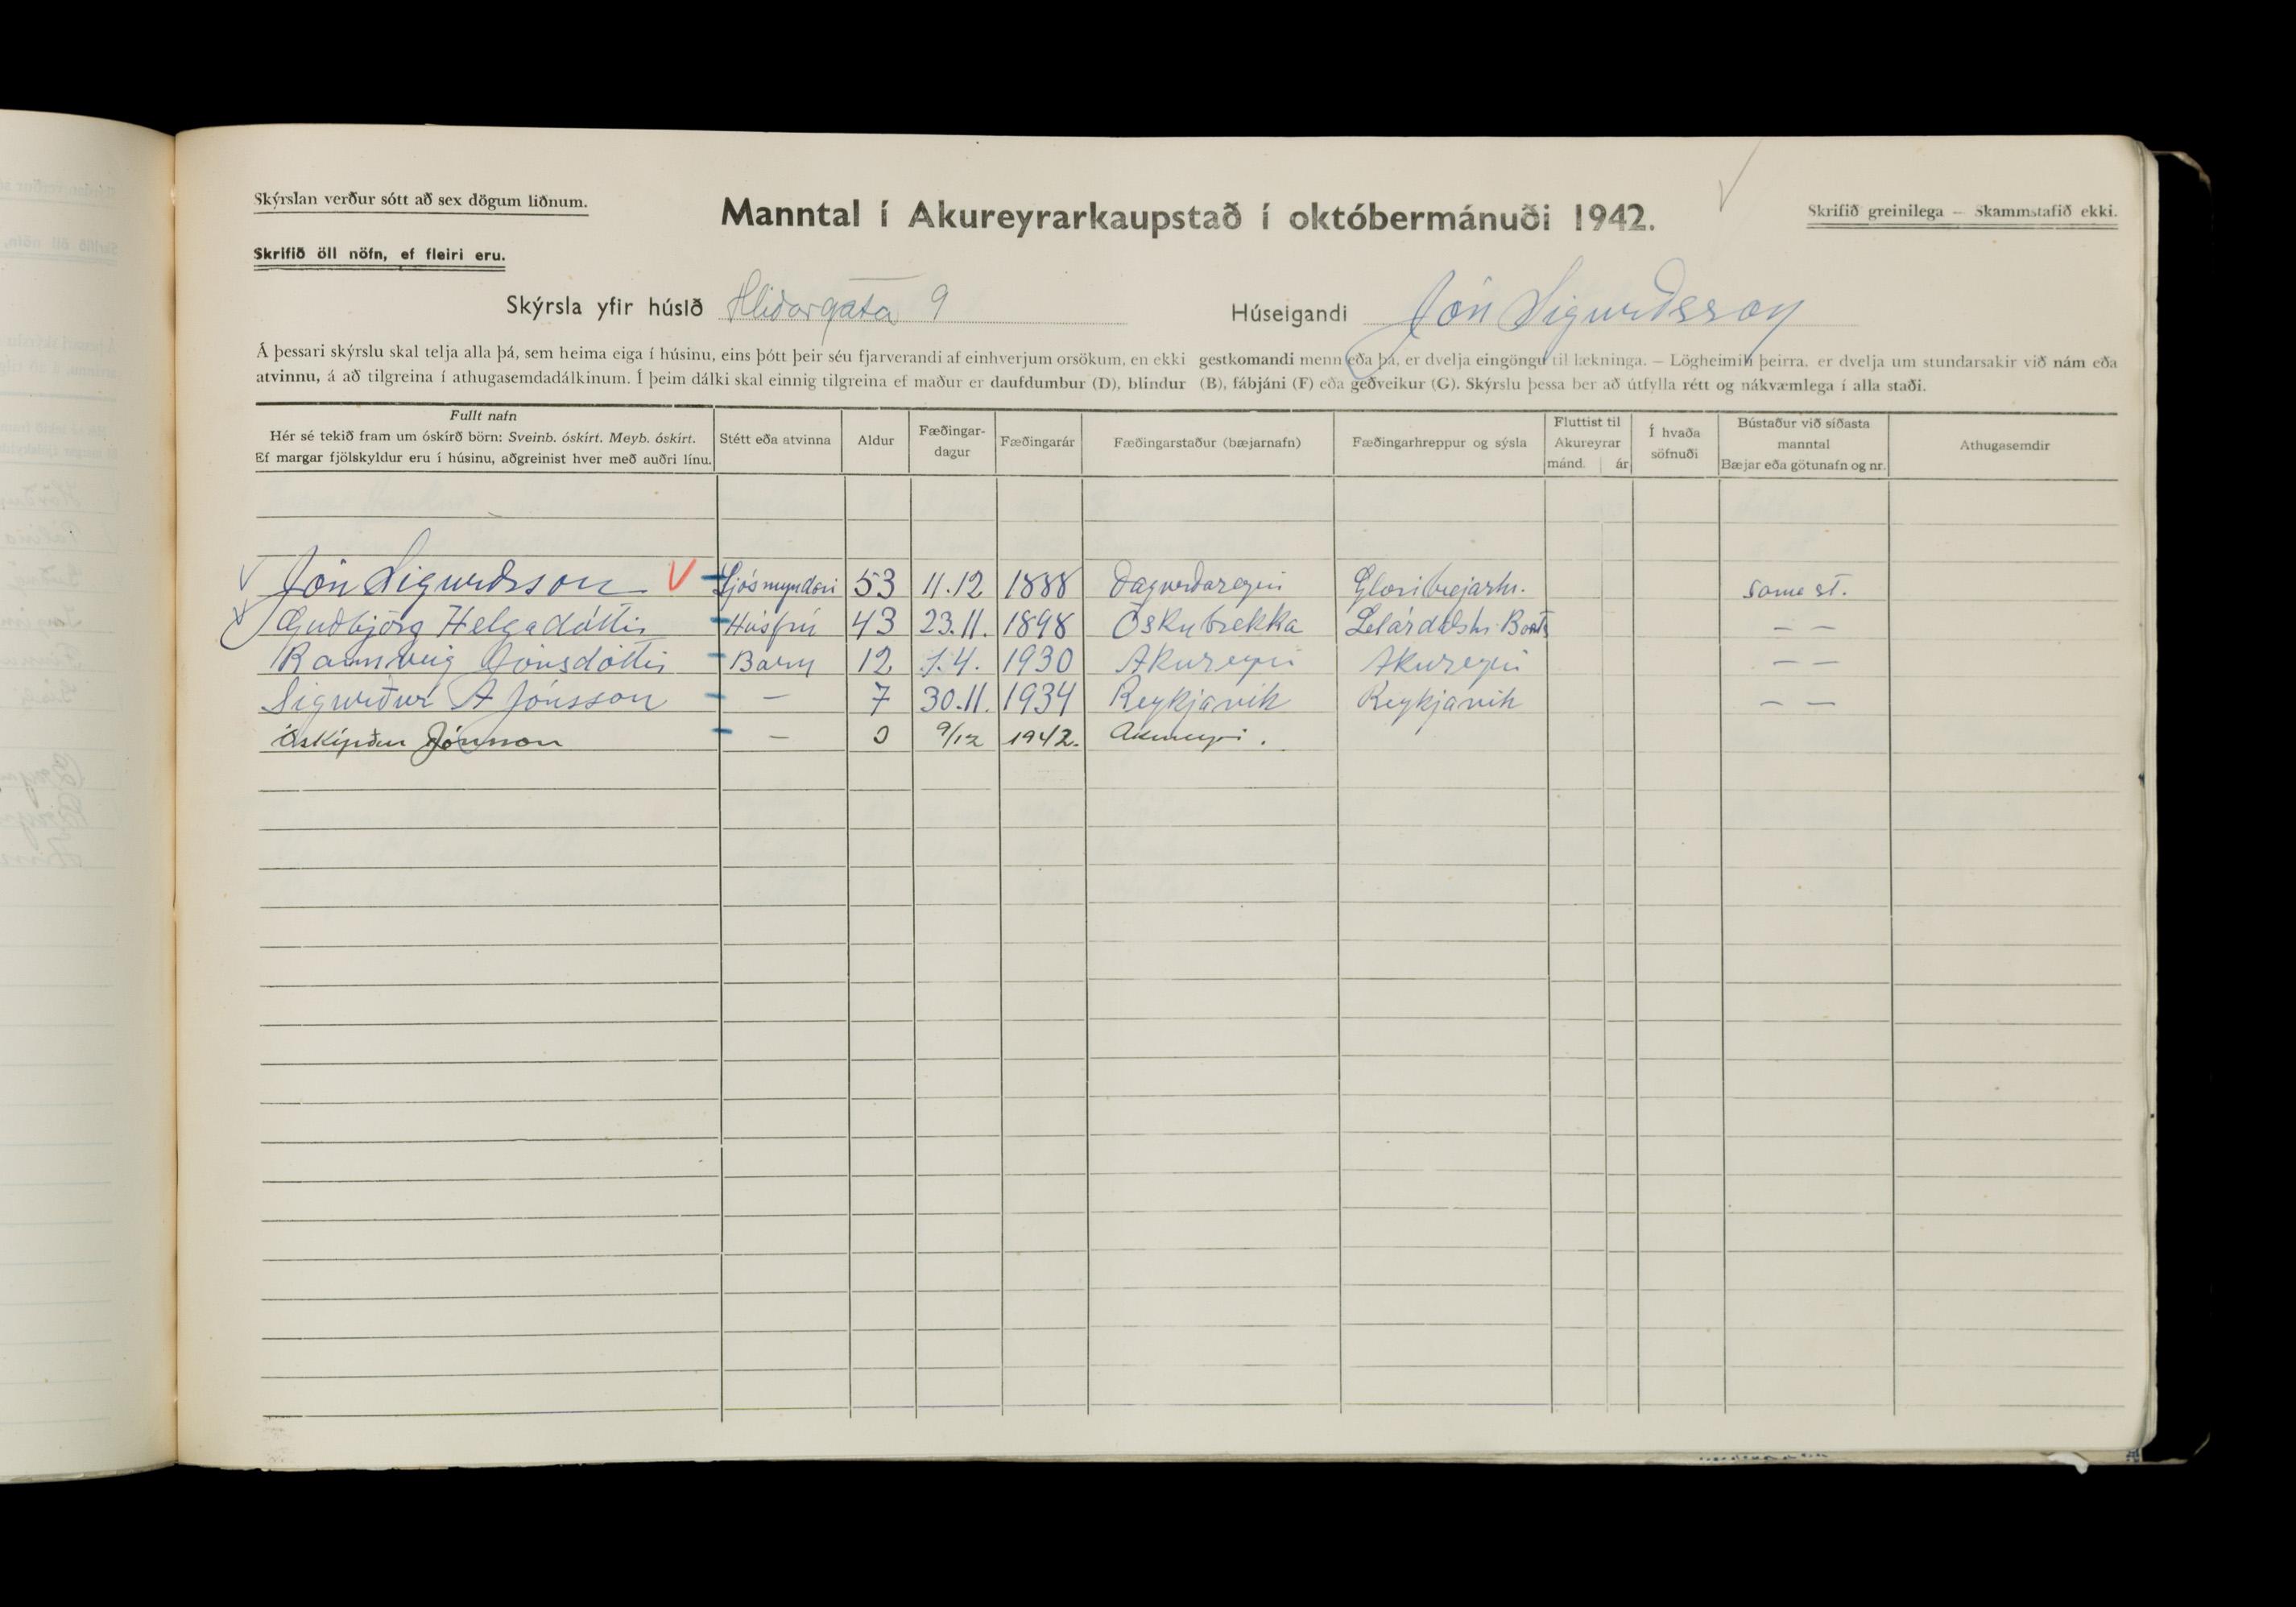 Skýrslan verður sótt að sex dögum liðnum.
Manntal í Akureyrarkaupstað í októbermánuði 1942.
Skrifið greinilega — Skammstafið ekki.
Skrifið öll nöfn, ef fleiri eru.
Skýrsla yfir húsið Hlíðargata 9 Húseigandi Jón Sigurðsson
Á þessari skýrslu skal telja alla þá, sem heima eiga í húsinu, eins þótt þeir séu fjarverandi af einhverjum orsökum, en ekki gestkomandi menn eða þá, er dvelja eingöngu til lækninga. — Lögheimili þeirra, er dvelja um stundarsakir við nám eða
atvinnu, á að tilgreina í athugasemdadálkinum. Í þeim dálki skal einnig tilgreina ef maður er daufdumbur (D), blindur (B), fábjáni (F) eða geðveikur (G). Skýrslu þessa ber að útfylla rétt og nákvæmlega í alla staði.
Fullt nafn
Hér sé tekið fram um óskírð börn: Sveinb. óskírt. Meyb. óskírt.
Ef margar fjölskyldur eru í húsinu, aðgreinist hver með auðri línu.
Stétt eða atvinna
Aldur
Fæðingar-
dagur
Fæðingarár
Fæðingarstaður (bæjarnafn)
Fæðingarhreppur og sýsla
Fluttist til
Akureyrar
mánd. ár
Í hvaða
söfnuði
Bústaður við síðasta
manntal
Bæjar eða götunafn og nr.
Athugasemdir
Jón Sigurðsson Ljósmyndari 53 11.12 1888 Dagverðareyri Glæsibæjarhr. sama st.
Guðbjörg Helgadóttir Húsfrú 43 23.11. 1898 Öskubrekka — —
Rannveig Jónsdóttir Barn 12 1.4. 1930 Akureyri Akureyri — —
Sigurður A Jónsson — 7 30.11. 1934 Reykjavík Reykjavík — —
Óskírður Jónsson — 0 9/12 1942. Akureyri.